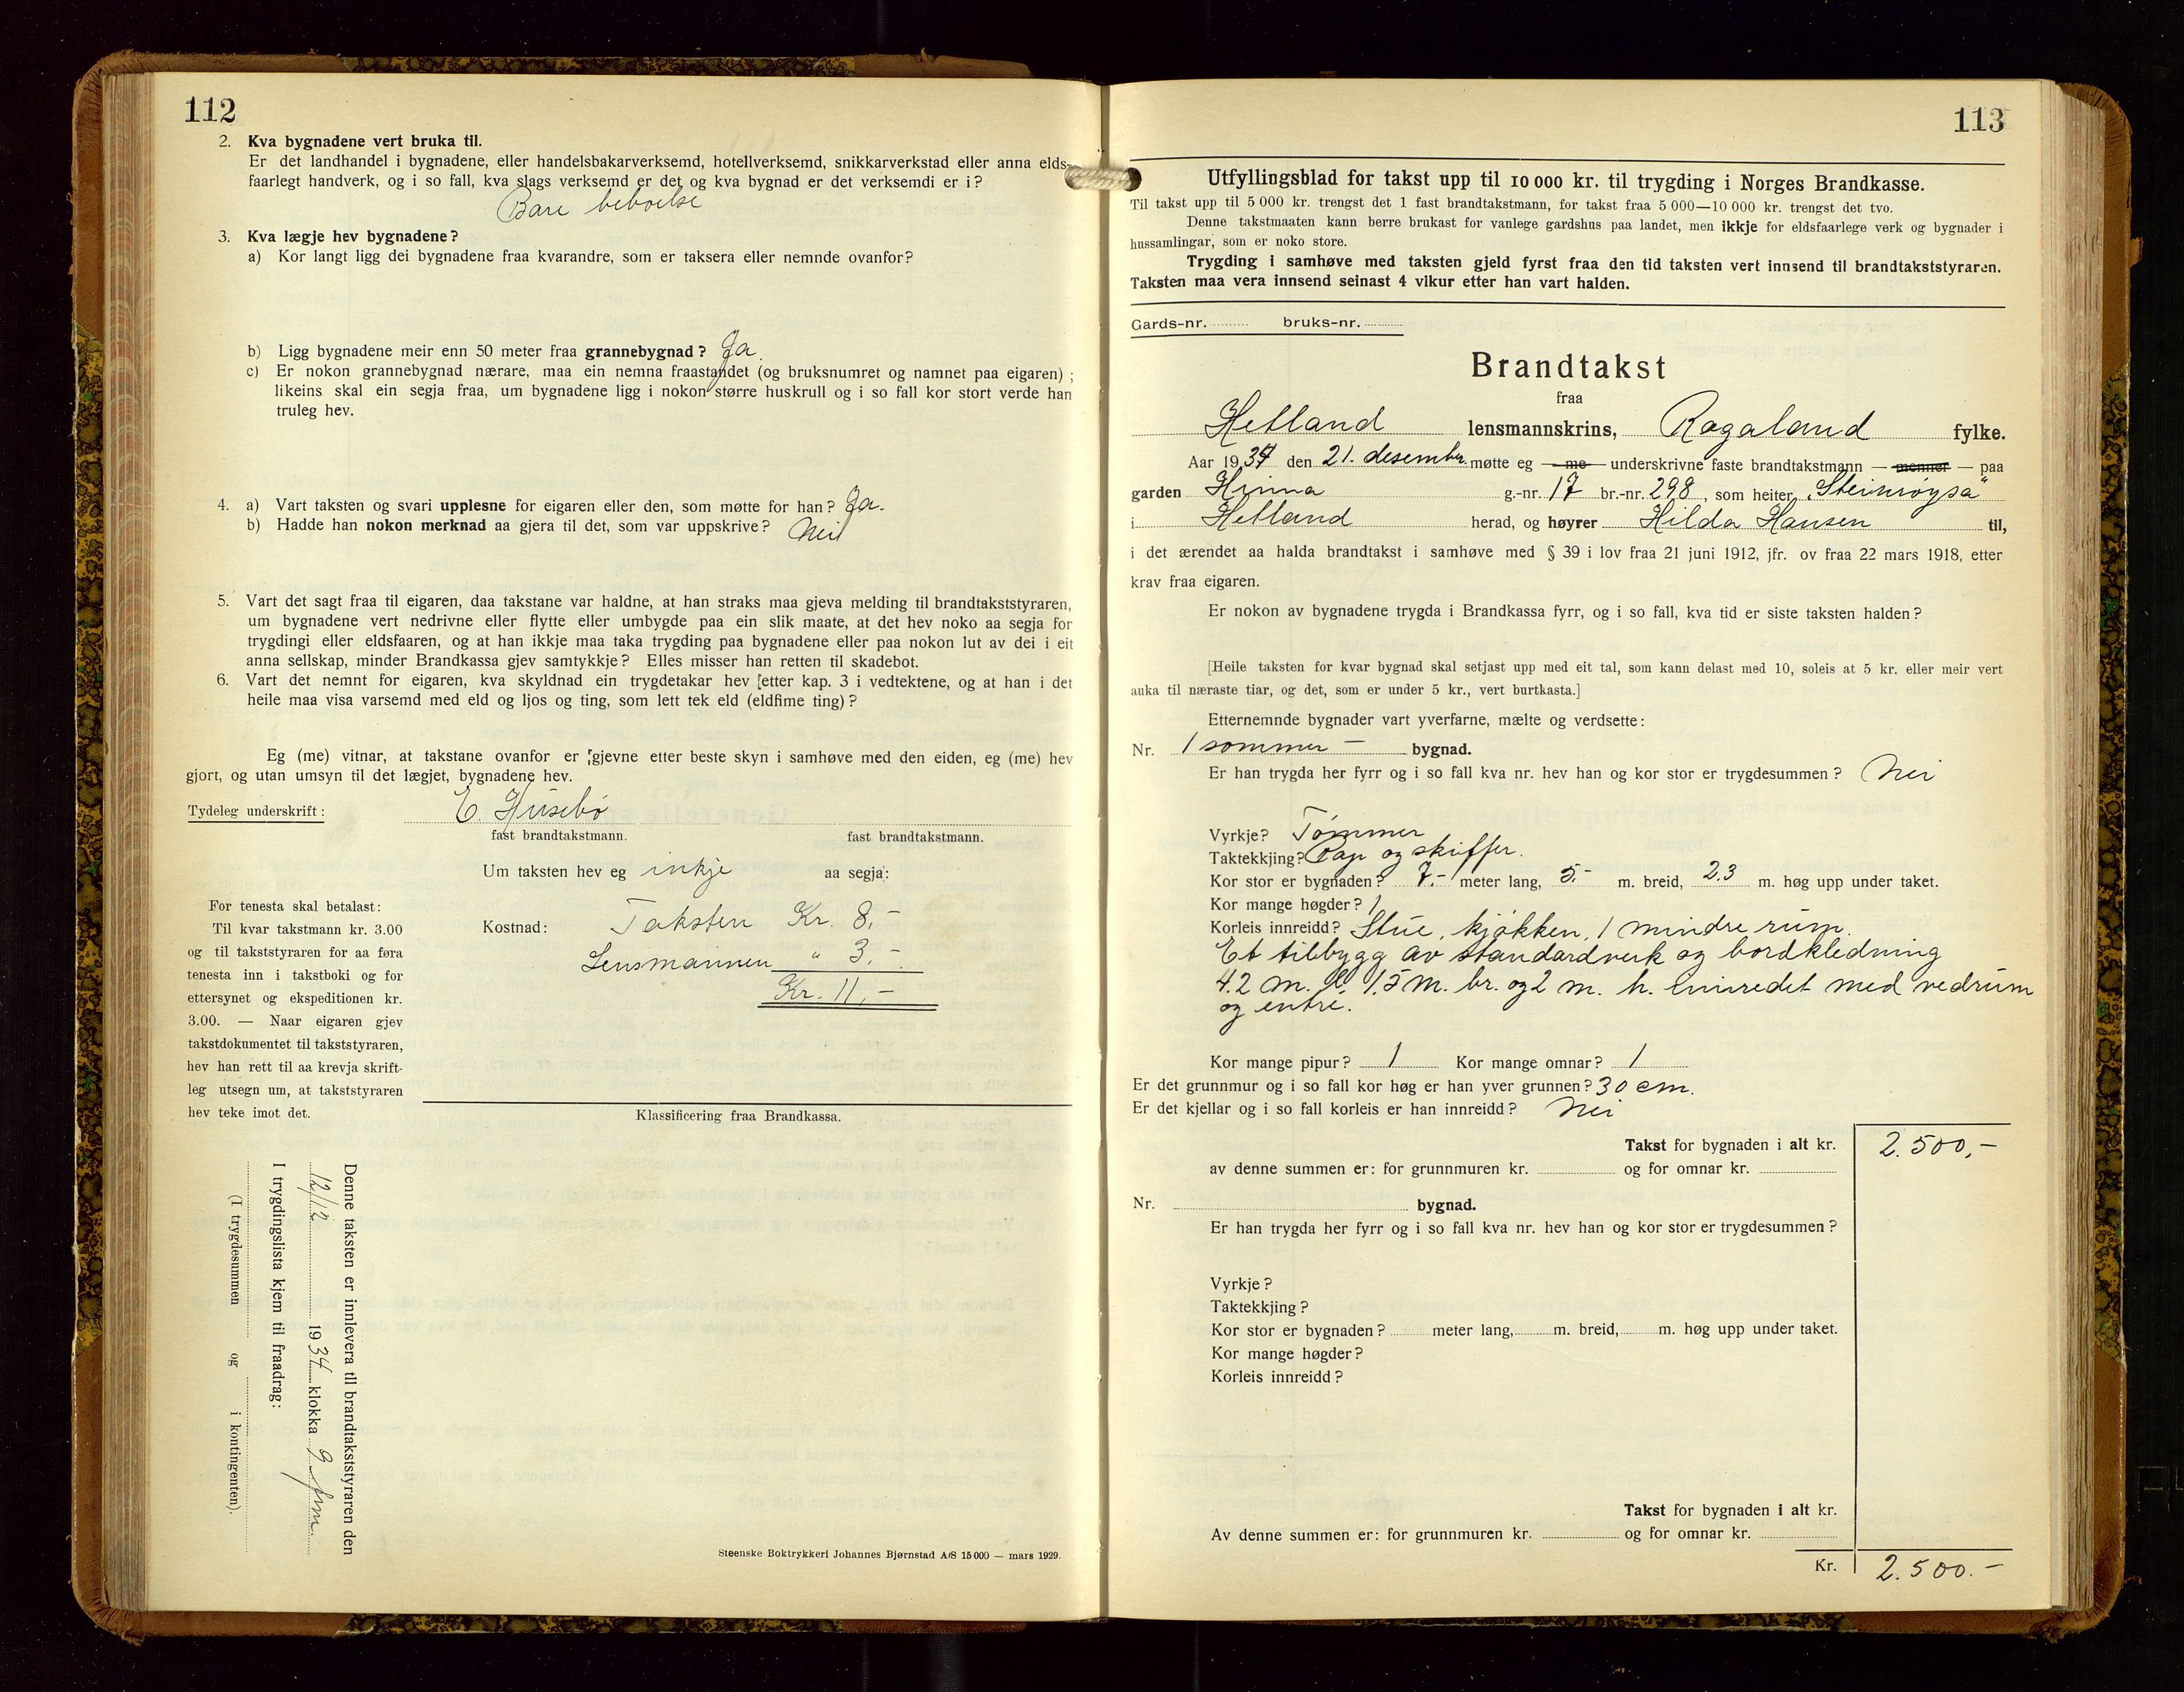 112
2. Kva bygnadene vert bruka til.
Er det landhandel i bygnadene, eller handelsbakarverksemd, hotellverksemd, snikkarverkstad eller anna elds-
faarlegt handverk, og i so fall, kva slags verksemd er det og kva bygnad er det verksemdi er i?
Bare beboelse
3. Kva lægje hev bygnadene?
a) Kor langt ligg dei bygnadene fraa kvarandre, som er taksera eller nemnde ovanfor?
b) Ligg bygnadene meir enn 50 meter fraa grannebygnad? Ja.
c) Er nokon grannebygnad nærare, maa ein nemna fraastandet (og bruksnumret og namnet paa eigaren);
likeins skal ein segja fraa, um bygnadene ligg i nokon større huskrull og i so fall kor stort verde han
truleg hev.
4. a) Vart taksten og svari upplesne for eigaren eller den, som møtte for han? Ja.
b) Hadde han nokon merknad aa gjera til det, som var uppskrive? Nei
5. Vart det sagt fraa til eigaren, daa takstane var haldne, at han straks maa gjeva melding til brandtakststyraren,
um bygnadene vert nedrivne eller flytte eller umbygde paa ein slik maate, at det hev noko aa segja for
trygdingi eller eldsfaaren, og at han ikkje maa taka trygding paa bygnadene eller paa nokon lut av dei i eit
anna sellskap, minder Brandkassa gjev samtykkje? Elles misser han retten til skadebot.
6. Vart det nemnt for eigaren, kva skyldnad ein trygdetakar hev [etter kap. 3 i vedtektene, og at han i det
heile maa visa varsemd med eld og ljos og ting, som lett tek eld (eldfime ting)?
Eg (me) vitnar, at takstane ovanfor er gjevne etter beste skyn i samhøve med den eiden, eg (me) hev
gjort, og utan umsyn til det lægjet, bygnadene hev.
Tydeleg underskrift: E. Husebø
fast brandtakstmann. fast brandtakstmann.
Um taksten hev eg inkje aa segja:
Kostnad: Taksten Kr. 8,-
Lensmannen " 3.-
Kr. 11,-
For tenesta skal betalast:
Til kvar takstmann kr. 3.00
og til takststyraren for aa føra
tenesta inn i takstboki og for
ettersynet og ekspeditionen kr.
3.00. — Naar eigaren gjev
takstdokumentet til takststyraren,
hev han rett til aa krevja skrift-
leg utsegn um, at takststyraren
hev teke imot det.
Klassificering fraa Brandkassa.
Denne taksten er innlevera til brandtakststyraren den
12/12 1934 klokka 9 fm.
I trygdingslista kjem til fraadrag:
(I trygdesummen og i kontingenten).
Steenske Boktrykkeri Johannes Bjørnstad A/S 15 000 — mars 1929.
113
Utfyllingsblad for takst upp til 10 000 kr. til trygding i Norges Brandkasse.
Til takst upp til 5 000 kr. trengst det 1 fast brandtakstmann, for takst fraa 5 000—10 000 kr. trengst det tvo.
Denne takstmaaten kann berre brukast for vanlege gardshus paa landet, men ikkje for eldsfaarlege verk og bygnader i
hussamlingar, som er noko store.
Trygding i samhøve med taksten gjeld fyrst fraa den tid taksten vert innsend til brandtakststyraren.
Taksten maa vera innsend seinast 4 vikur etter han vart halden.
Gards-nr. bruks-nr.
Brandtakst
fraa
Hetland lensmannskrins, Rogaland fylke.
Aar 1934 den 21. desember møtte eg — me — underskrivne faste brandtakstmann — menner — paa
garden Hinna g.-nr. 17 br.-nr. 298, som heiter "Steinrøysa"
i Hetland herad, og høyrer Hilda Hansen til,
i det ærendet aa halda brandtakst i samhøve med § 39 i lov fraa 21 juni 1912, jfr. ov fraa 22 mars 1918, etter
krav fraa eigaren.
Er nokon av bygnadene trygda i Brandkassa fyrr, og i so fall, kva tid er siste taksten halden?
[Heile taksten for kvar bygnad skal setjast upp med eit tal, som kann delast med 10, soleis at 5 kr. eller meir vert
auka til næraste tiar, og det, som er under 5 kr., vert burtkasta.]
Etternemnde bygnader vart yverfarne, mælte og verdsette:
Nr. 1 sommer- bygnad.
Er han trygda her fyrr og i so fall kva nr. hev han og kor stor er trygdesummen? Nei
Vyrkje? Tømmer
Taktekkjing? Pap og skiffer.
Kor stor er bygnaden? 7.- meter lang, 5.- m. breid, 2.3 m. høg upp under taket.
Kor mange høgder? 1
Korleis innreidd? Stue, kjøkken, 1 mindre rum.
Et tilbygg av standardverk og bordkledning
4.2 m. l. 1.5 m. br. og 2 m. h. Innredet med vedrum
og entré.
Kor mange pipur? 1 Kor mange omnar? 1
Er det grunnmur og i so fall kor høg er han yver grunnen? 30 cm.
Er det kjellar og i so fall korleis er han innreidd? Nei
Takst for bygnaden i alt kr. 2.500,-
av denne summen er: for grunnmuren kr. og for omnar kr.
Nr. bygnad.
Er han trygda her fyrr og i so fall kva nr. hev han og kor stor er trygdesummen?
Vyrkje?
Taktekkjing?
Kor stor er bygnaden? meter lang, m. breid, m. høg upp under taket.
Kor mange høgder?
Korleis innreidd?
Takst for bygnaden i alt kr.
Av denne summen er: for grunnmuren kr. og for omnar kr.
Kr. 2.500.-